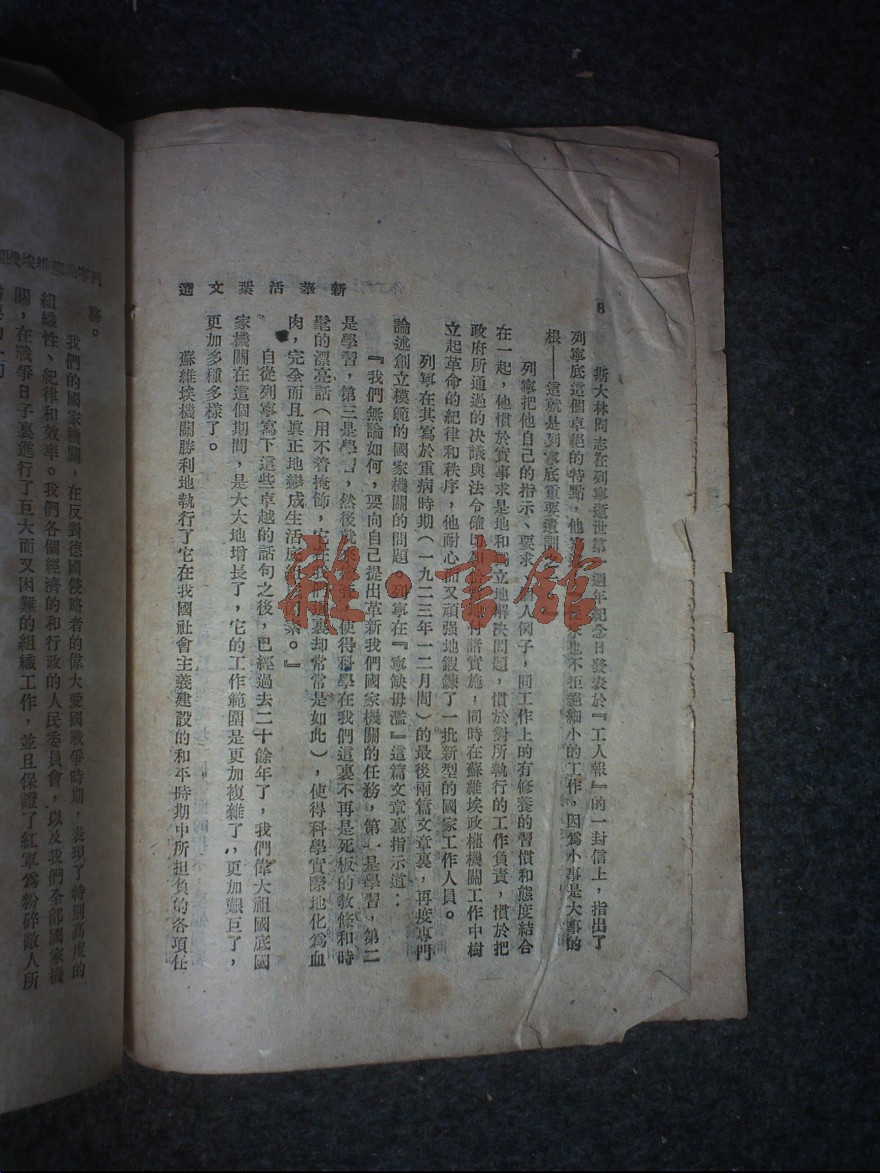 新華活葉文選
8
斯大林同志在列寧逝世第 週年紀念日發表於『工人報』的一封信上，指出了
列寧底這個卓絕的特點，他 也不拒絕細小的工作，因爲小事是大事的
根——這就是列寧底重要遺訓之
列寧把他自己的指示、要求 人例子，同工作上的有修養的習慣和態度結合
在一起，他慣於實事求是地和獨立地解決問題，慣於對所執行的工作負責，慣於把
政府所通過的決議與法令確 付諸實施，同時在蘇維埃政權機關工作中樹
立起革命的紀律和秩序，他耐心而又頑强地鍛鍊了一批新型的國家工作人員。
列寧在其寫於重病時期（一九二三年一二月間）的最後兩篇文章裏，再度專門
論述創立模範的國家機關的問題。列寧在『寧缺毋濫』這篇文章裏指示道：
『我們無論如何，要向自己提出革新我們國家機關的任務，第一是學習，第二
是學習，第三是學習，然後就 使得科學在我們這裏不再是死板的教條和時
髦的漂亮話（用不着掩飾，它在我們這裏却常常是如此），使得科學實際地化爲血
肉，完全而且眞正地變成生活底 素。』
自從列寧寫下這些卓越的話句之後，已經過去二十餘年了，我們偉大祖國底國
家機關在這個期間，是大大地增長了，它的工作範圍是更加複雜了，更加艱巨了，
更加多種多樣了。
蘇維埃機關勝利地執行了它在我國社會主義建設的和平時期中所担負的各項任
務。
我們的國家機關，在反對德國侵略者的偉大愛國戰爭時期，表現了特別高度的
組織性、紀律和效率。我們各個經濟的和行政的人民委員會，以及我們全部國家機
關，在戰爭日子裏進行了巨大而又困難的組織工作，並且保證了紅軍爲粉碎敵人所
雅·書館